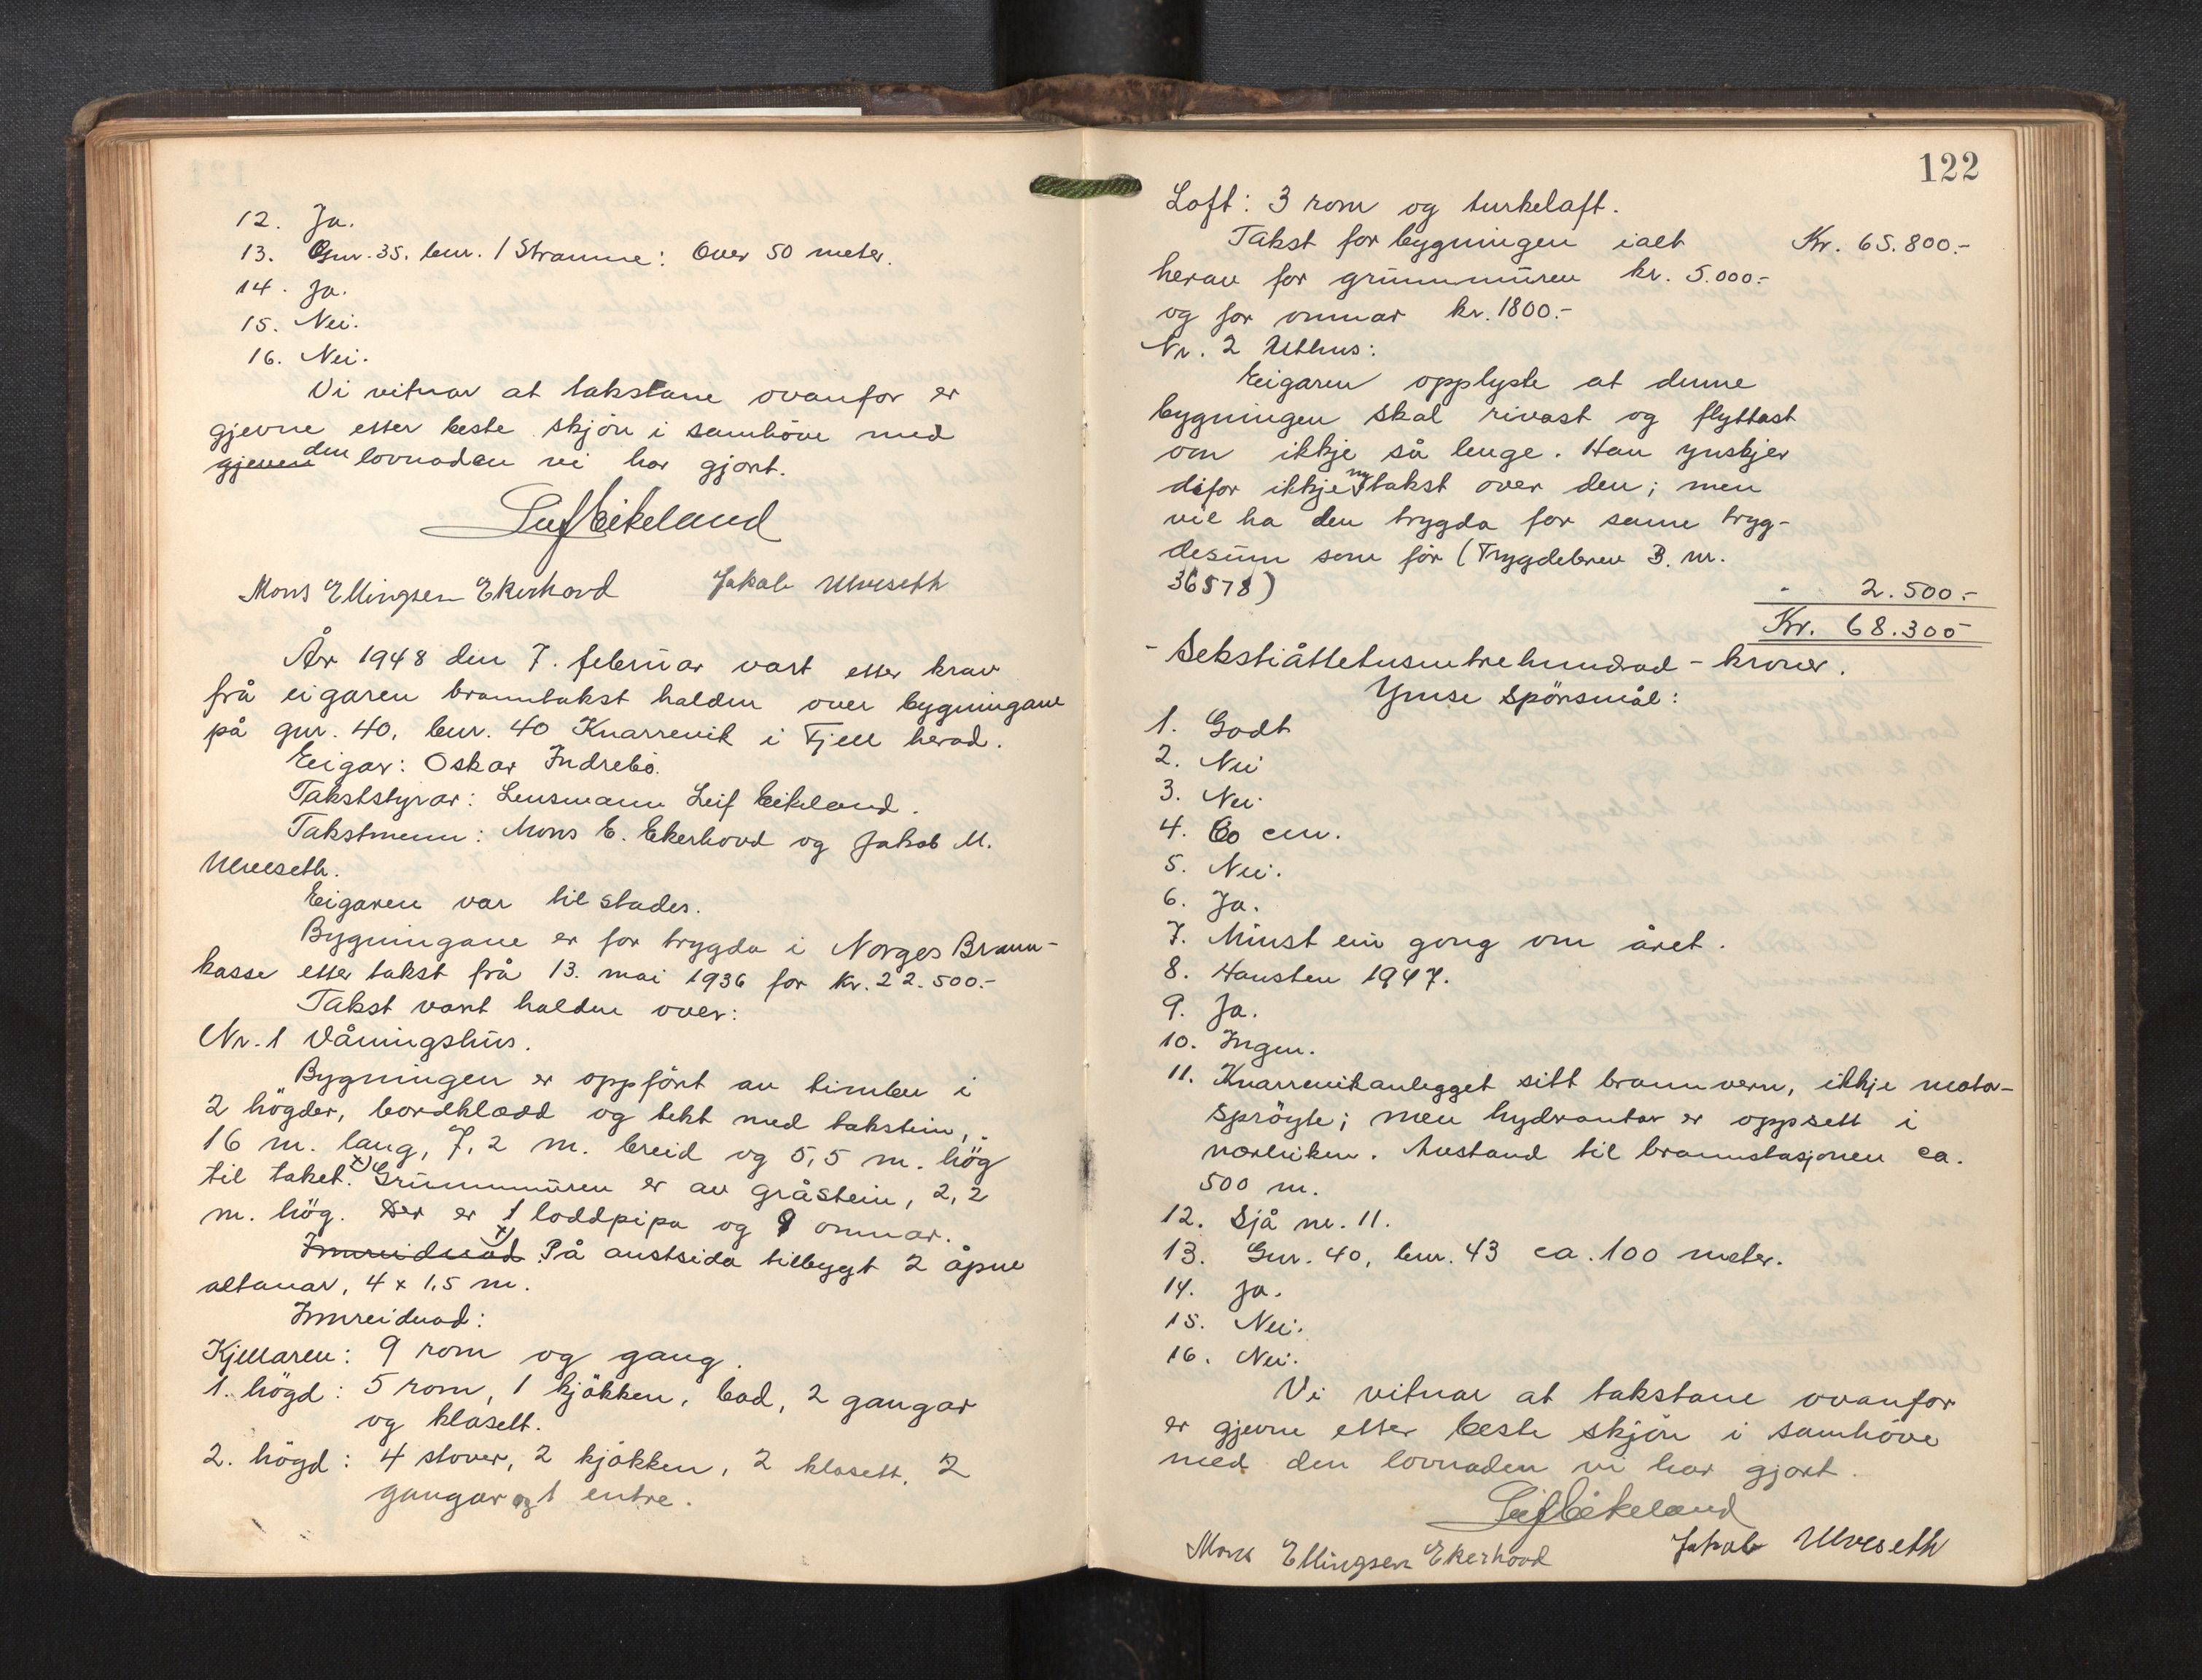 12. Ja.
13. Gnr. 35. bnr. 1 Straume: Over 50 meter.
14. Ja.
15. Nei.
16. Nei.
Vi vitnar at takstane ovanfor er
gjevne etter beste skjön i samhöve med
gjeven den lovnaden vi har gjort.
Leif Eikeland
Mons Ellingsen Ekerhovd Jakob Ulveseth
År 1948 den 7. februar vart etter krav
frå eigaren branntakst halden over bygningane
på gnr. 40, bnr. 40 Knarrevik i Fjell herad.
Eigar: Oskar Indrebö.
Takststyrar: Lensmann Leif Eikeland.
Takstmenn: Mons E. Ekerhovd og Jakob M.
Ulveseth.
Eigaren var til stades.
Bygningane er for trygda i Norges Brann-
kasse etter takst frå 13. mai 1936 for kr. 22.500.-
Takst vart halden over:
Nr. 1 Våningshus.
Bygningen er oppfört av timber i
2 högder, bordkledd og tekt med takstein,
16 m. lang, 7,2 m. breid og 5,5 m. hög
til taket. x) Grunnmuren er av gråstein, 2,2
m. hög. Der er 1 loddpipa og 9 omnar.
Innreidnad x) På austsida tilbygt 2 åpne
altanar, 4 x 1,5 m.
Innreidnad:
Kjellaren: 9 rom og gang.
1. högd: 5 rom, 1 kjökken, bad, 2 gangar
og klosett.
2. högd: 4 stover, 2 kjökken, 2 klosett, 2
gangar og 1 entre.
122
Loft: 3 rom og turkeloft.
Takst for bygningen ialt Kr. 65.800.-
herav for grunnmuren kr. 5.000.-
og for omnar kr. 1800.-
Nr. 2 Uthus:
Eigaren opplyste at denne
bygningen skal rivast og flyttast
om ikkje så lenge. Han ynskjer
difor ikkje ny takst over den; men
vil ha den trygda for same tryg-
desum som för (Trygdebrev B. nr.
36578)
" 2.500.-
Kr. 68.300-
- Sekstiåttetusentrehundrad - kroner.
Ymse spörsmål:
1. Godt
2. Nei
3. Nei
4. 60 cm.
5. Nei.
6. Ja.
7. Minst ein gong om året.
8. Hausten 1947.
9. Ja.
10. Ingen.
11. Knarrevikanlegget sitt brannvern, ikkje motor-
spröyte; men hydrantar er oppsett i
närleiken. Avstand til brannstasjonen ca.
500 m.
12. Sjå nr. 11.
13. Gnr. 40, bnr. 43 ca. 100 meter.
14. Ja.
15. Nei.
16. Nei.
Vi vitnar at takstane ovanfor
er gjevne etter beste skjön i samhöve
med den lovnaden vi har gjort.
Leif Eikeland
Mons Ellingsen Ekerhovd Jakob Ulveseth